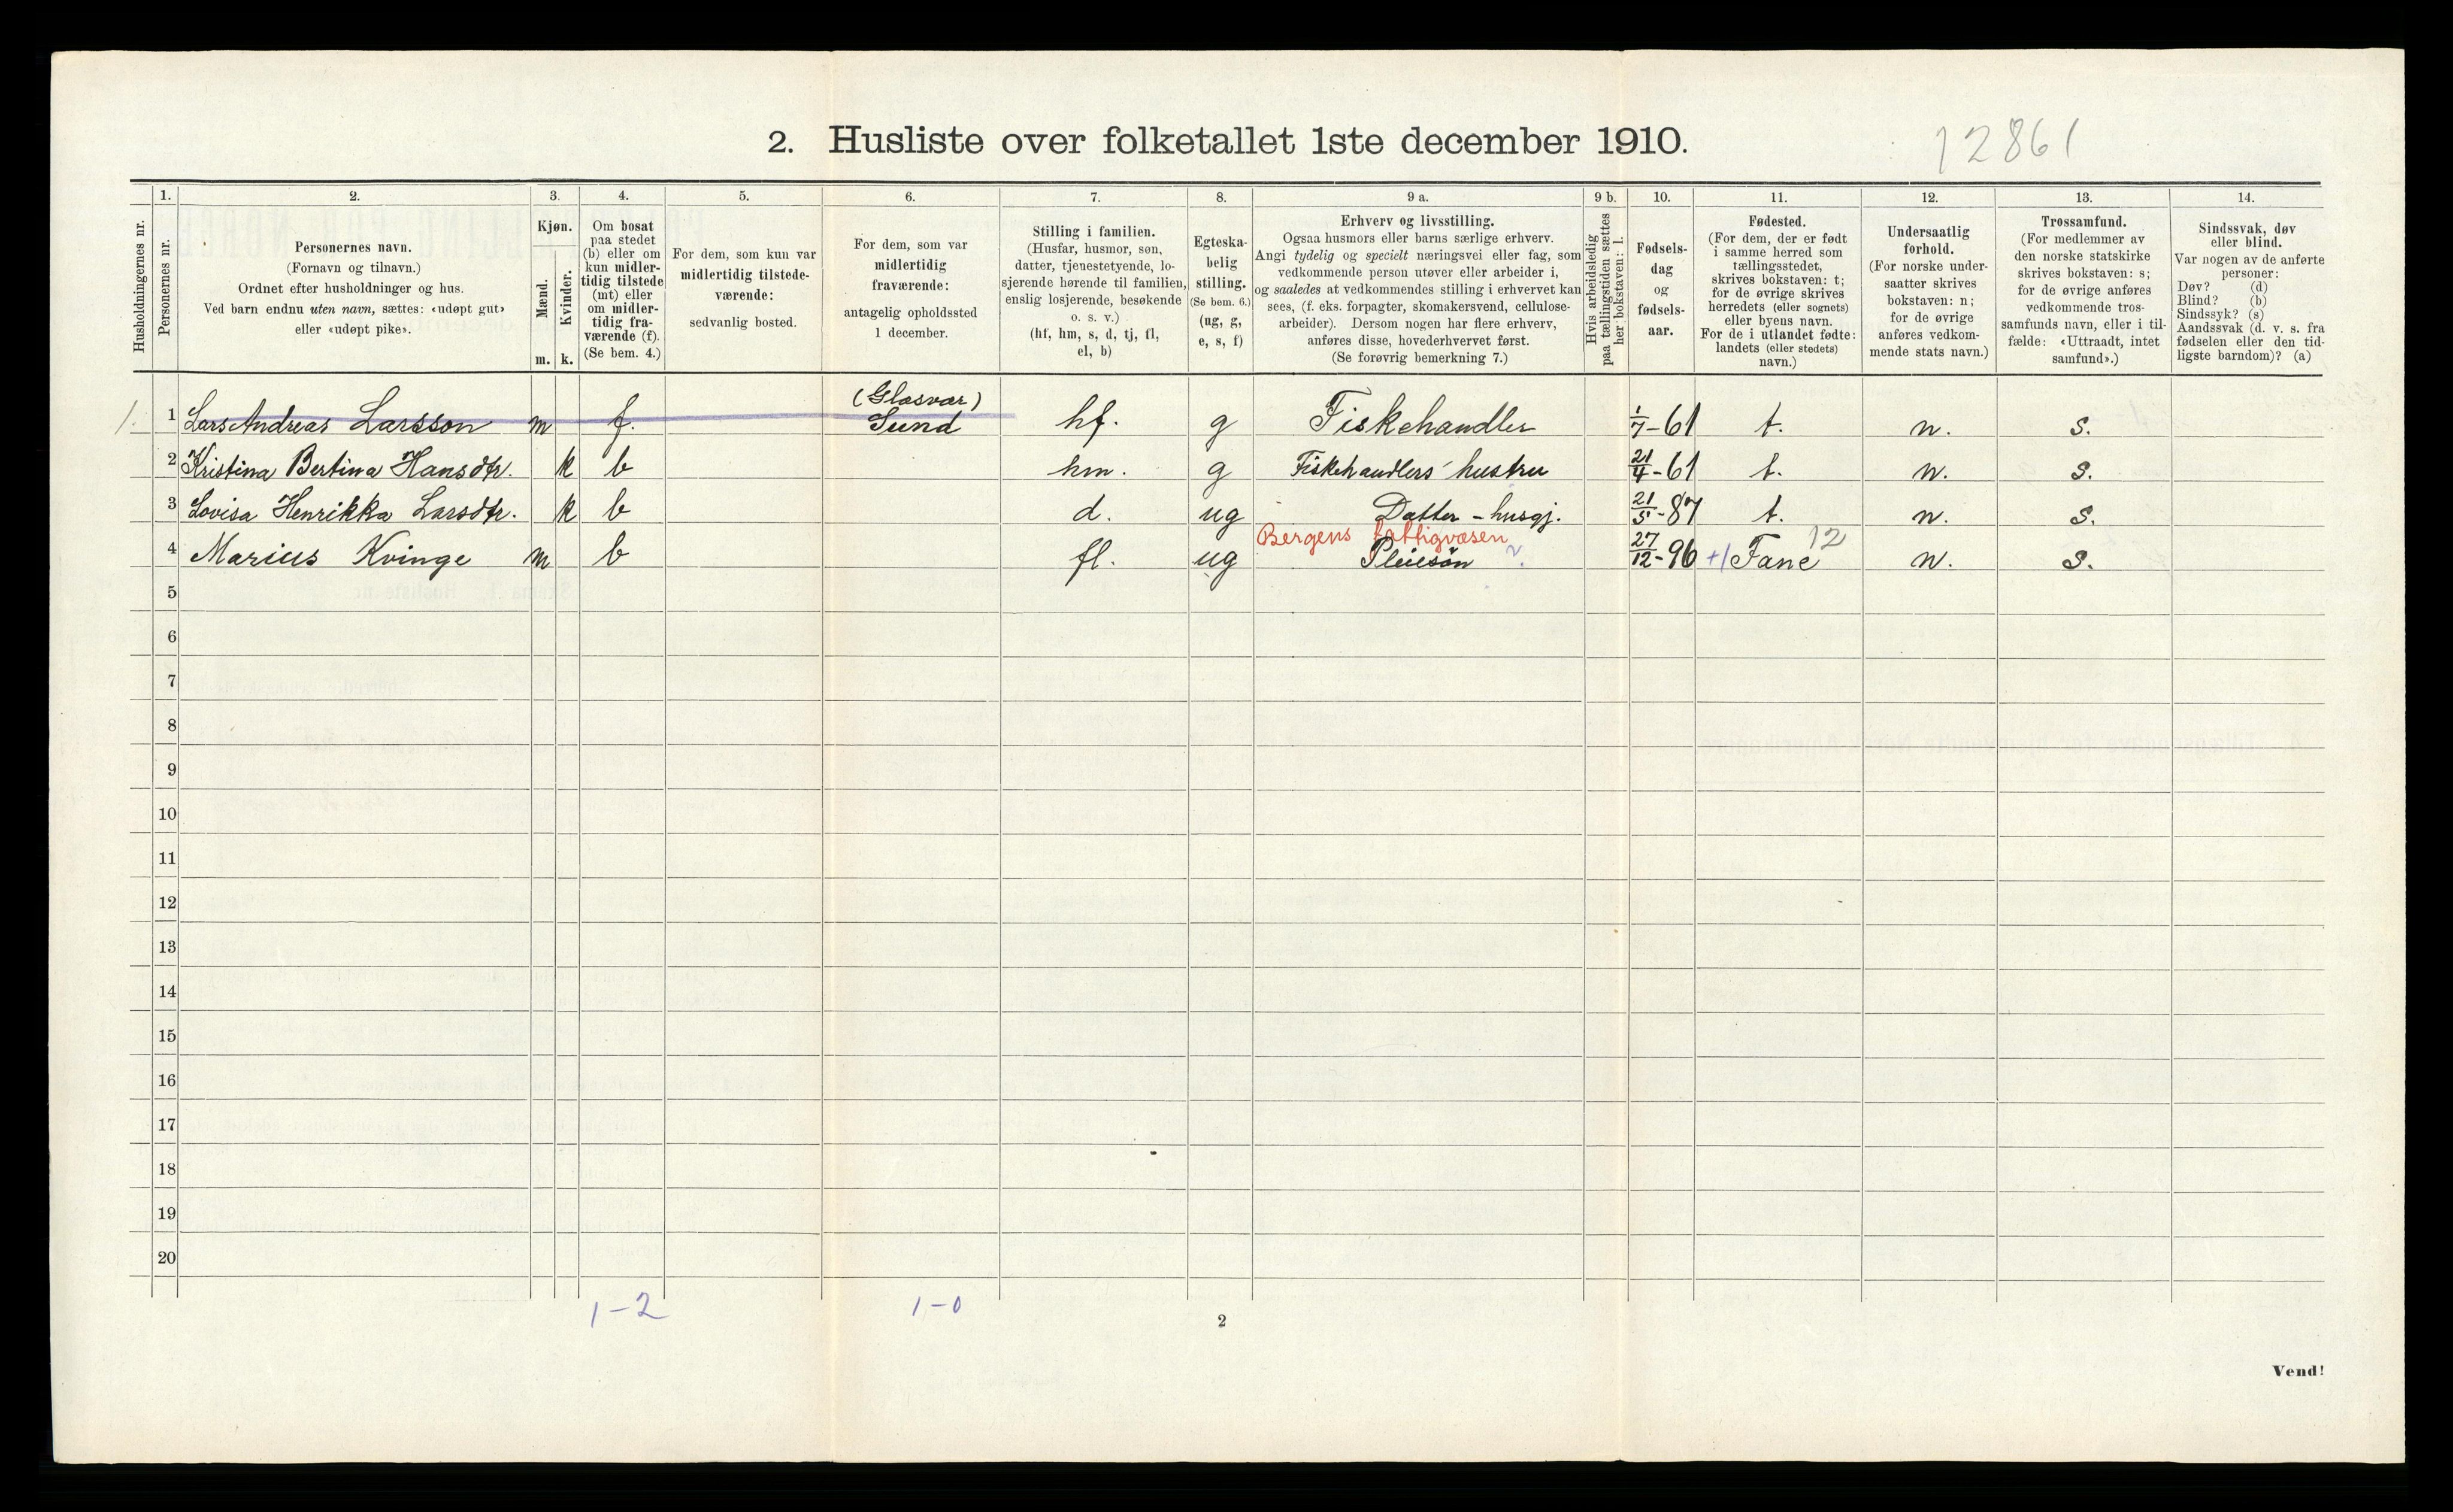 2. Husliste over folketallet 1ste december 1910.
12861
1. 2. 3. 4. 5. 6. 7. 8. 9 a. 9 b. 10. 11. 12. 13. 14.
Husholdningernes nr.
Personernes nr.
Personernes navn.
(Fornavn og tilnavn.)
Ordnet efter husholdninger og hus.
Ved barn endnu uten navn, sættes: «udøpt gut»
eller «udøpt pike».
Kjøn.
Mænd.
Kvinder.
m. k.
Om bosat
paa stedet
(b) eller om
kun midler-
tidig tilstede
(mt) eller
om midler-
tidig fra-
værende (f).
(Se bem. 4.)
For dem, som kun var
midlertidig tilstede-
værende:
sedvanlig bosted.
For dem, som var
midlertidig
fraværende:
antagelig opholdssted
1 december.
Stilling i familien.
(Husfar, husmor, søn,
datter, tjenestetyende, lo-
sjerende hørende til familien,
enslig losjerende, besøkende
o. s. v.)
(hf, hm, s, d, tj, fl,
el, b)
Egteska-
belig
stilling.
(Se bem. 6.)
(ug, g,
e, s, f)
Erhverv og livsstilling.
Ogsaa husmors eller barns særlige erhverv.
Angi tydelig og specielt næringsvei eller fag, som
vedkommende person utøver eller arbeider i,
og saaledes at vedkommendes stilling i erhvervet kan
sees, (f. eks. forpagter, skomakersvend, cellulose-
arbeider). Dersom nogen har flere erhverv,
anføres disse, hovederhvervet først.
(Se forøvrig bemerkning 7.)
Hvis arbeidsledig
paa tællingstiden sættes
her bokstaven: l.
Fødsels-
dag
og
fødsels-
aar.
Fødested.
(For dem, der er født
i samme herred som
tællingsstedet,
skrives bokstaven: t;
for de øvrige skrives
herredets (eller sognets)
eller byens navn.
For de i utlandet fødte:
landets (eller stedets)
navn.)
Undersaatlig
forhold.
(For norske under-
saatter skrives
bokstaven: n;
for de øvrige
anføres vedkom-
mende stats navn.)
Trossamfund.
(For medlemmer av
den norske statskirke
skrives bokstaven: s;
for de øvrige anføres
vedkommende tros-
samfunds navn, eller i til-
fælde: «Uttraadt, intet
samfund».)
Sindssvak, døv
eller blind.
Var nogen av de anførte
personer:
Døv? (d)
Blind? (b)
Sindssyk? (s)
Aandssvak (d. v. s. fra
fødselen eller den tid-
ligste barndom)? (a)
(Glasvær)
1. 1 Lars Andreas Larsson m f. Sund hf. g Fiskehandler 1/7-61 t. n. s.
2 Kristina Bertina Hansdtr. k b hm. g Fiskehandlers hustru 21/4-61 t. n. s.
3 Lovisa Henrikka Larsdtr. k b d. ug Datter - husgj. 21/5-87 t. n. s.
Bergens fattigvæsen 12
4 Marius Kvinge m b fl. ug Pleiesön 27/12-96 +1 Fane n. s.
5
6
7
8
9
10
11
12
13
14
15
16
17
18
19
20
1-2 1-0
2
Vend!